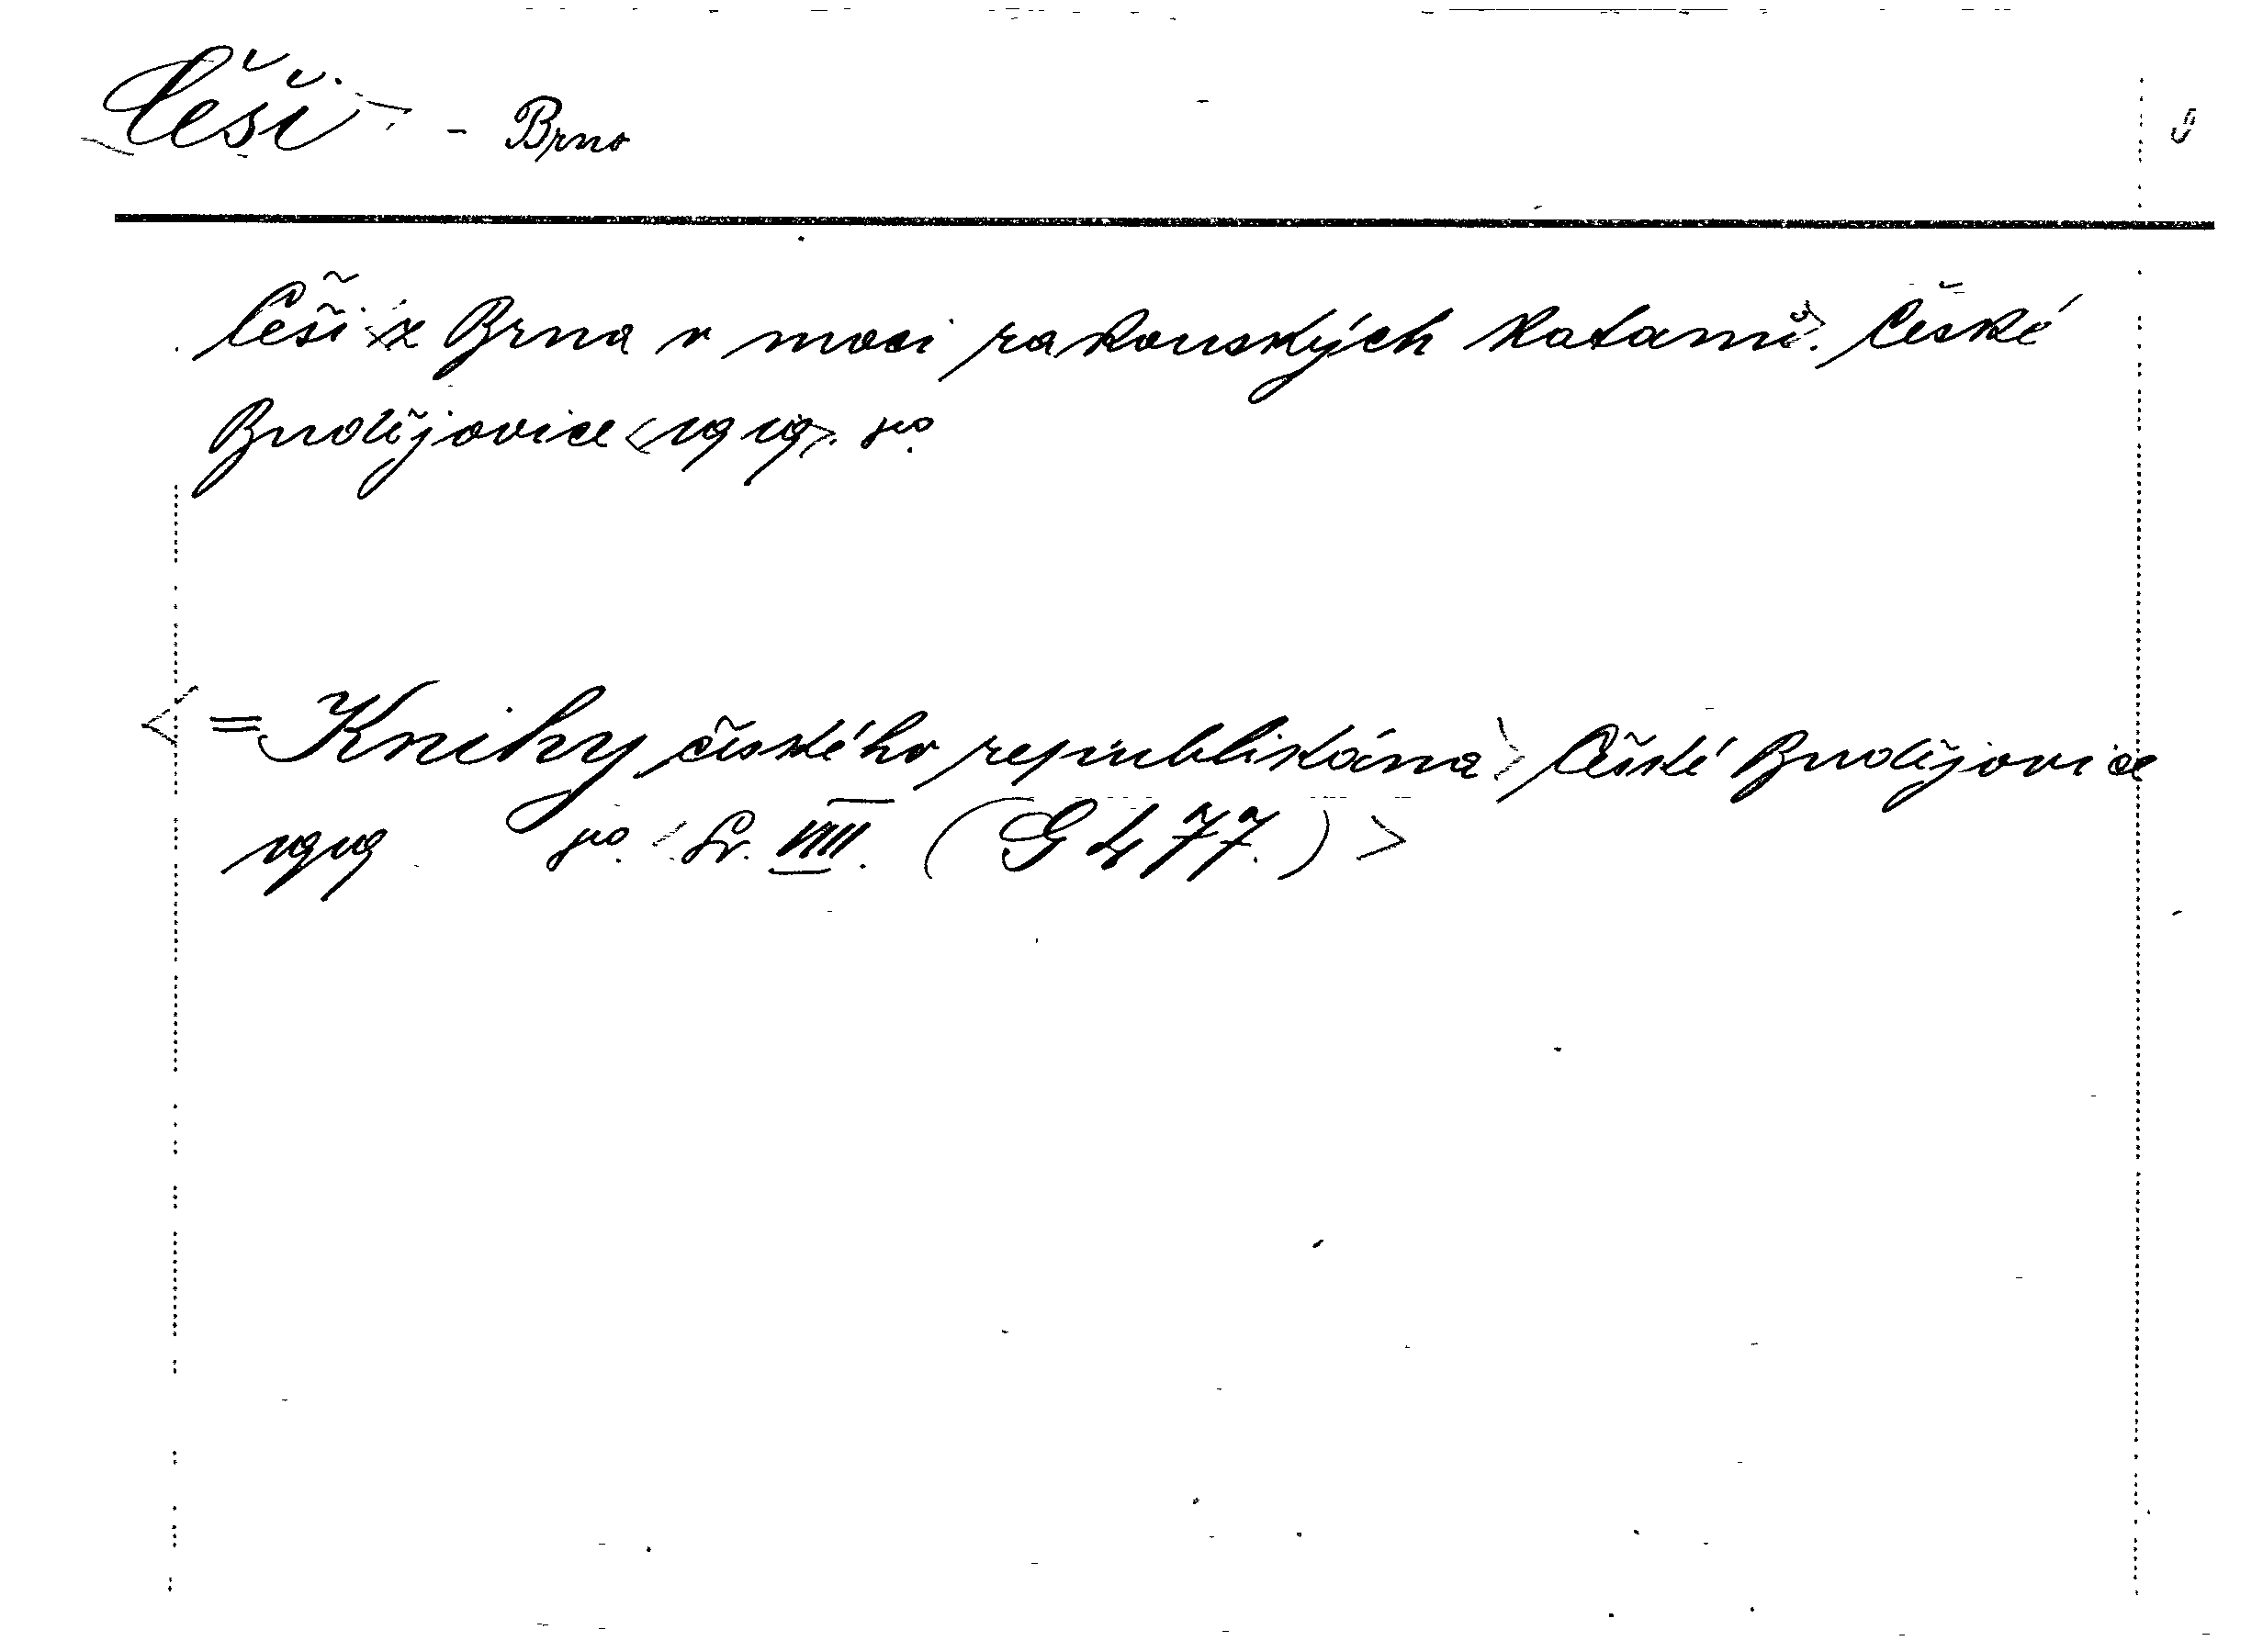 Češi - Brno
Češi z Brna v moci rakouských katanů. České
Budějovice <1919>. 8°.
<= Knihy českého republikána> České Budějovice
1919 8°. Sv. VIII. (G 477.)>